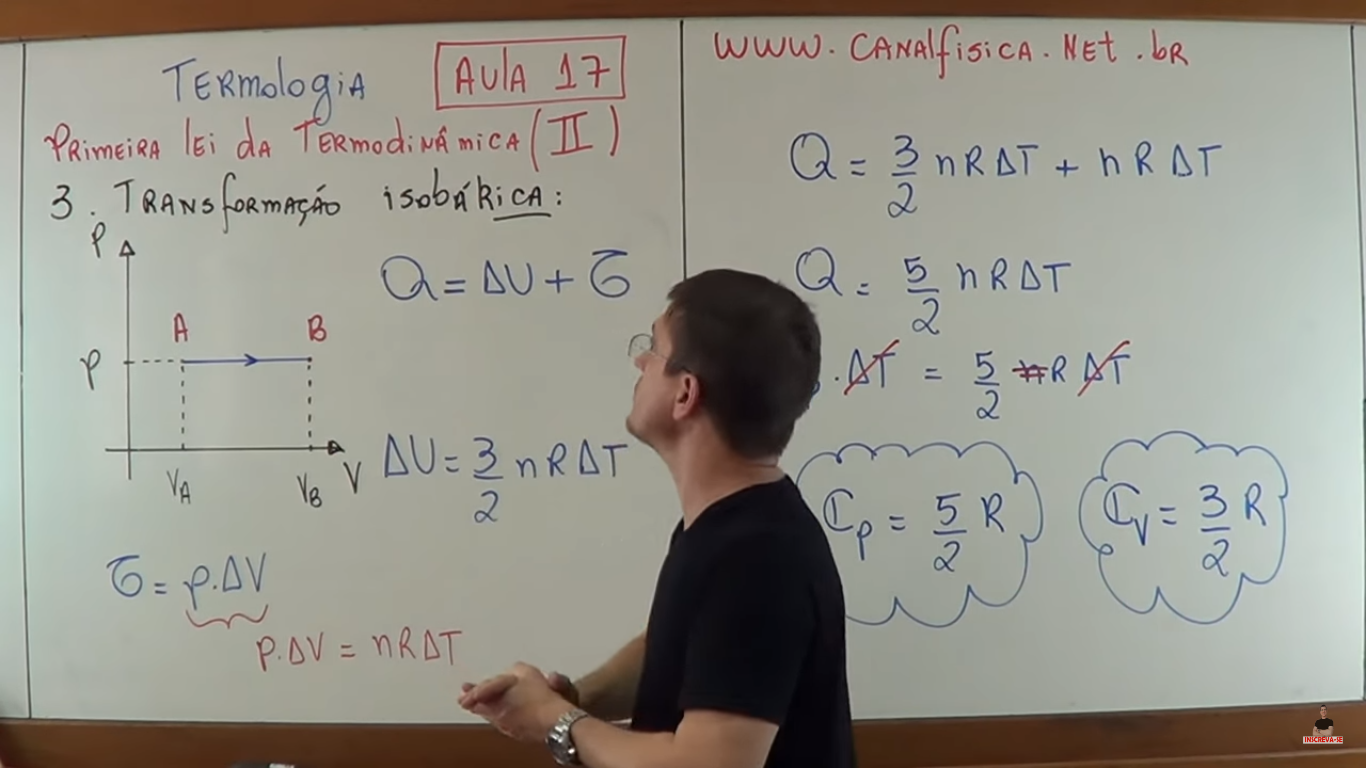 Termologia Aula 17
Primeira lei da Termodinâmica (II)
3. Transformação isobárica:
P
A B
p
V_A V_B V
Q = ΔU + τ
ΔU = 3/2 nRΔT
τ = p.ΔV
p.ΔV = nRΔT
www.canalfisica.net.br
Q = 3/2 nRΔT + nRΔT
Q = 5/2 nRΔT
.ΔT = 5/2 nRΔT
C_p = 5/2 R C_V = 3/2 R
INSCREVA-SE